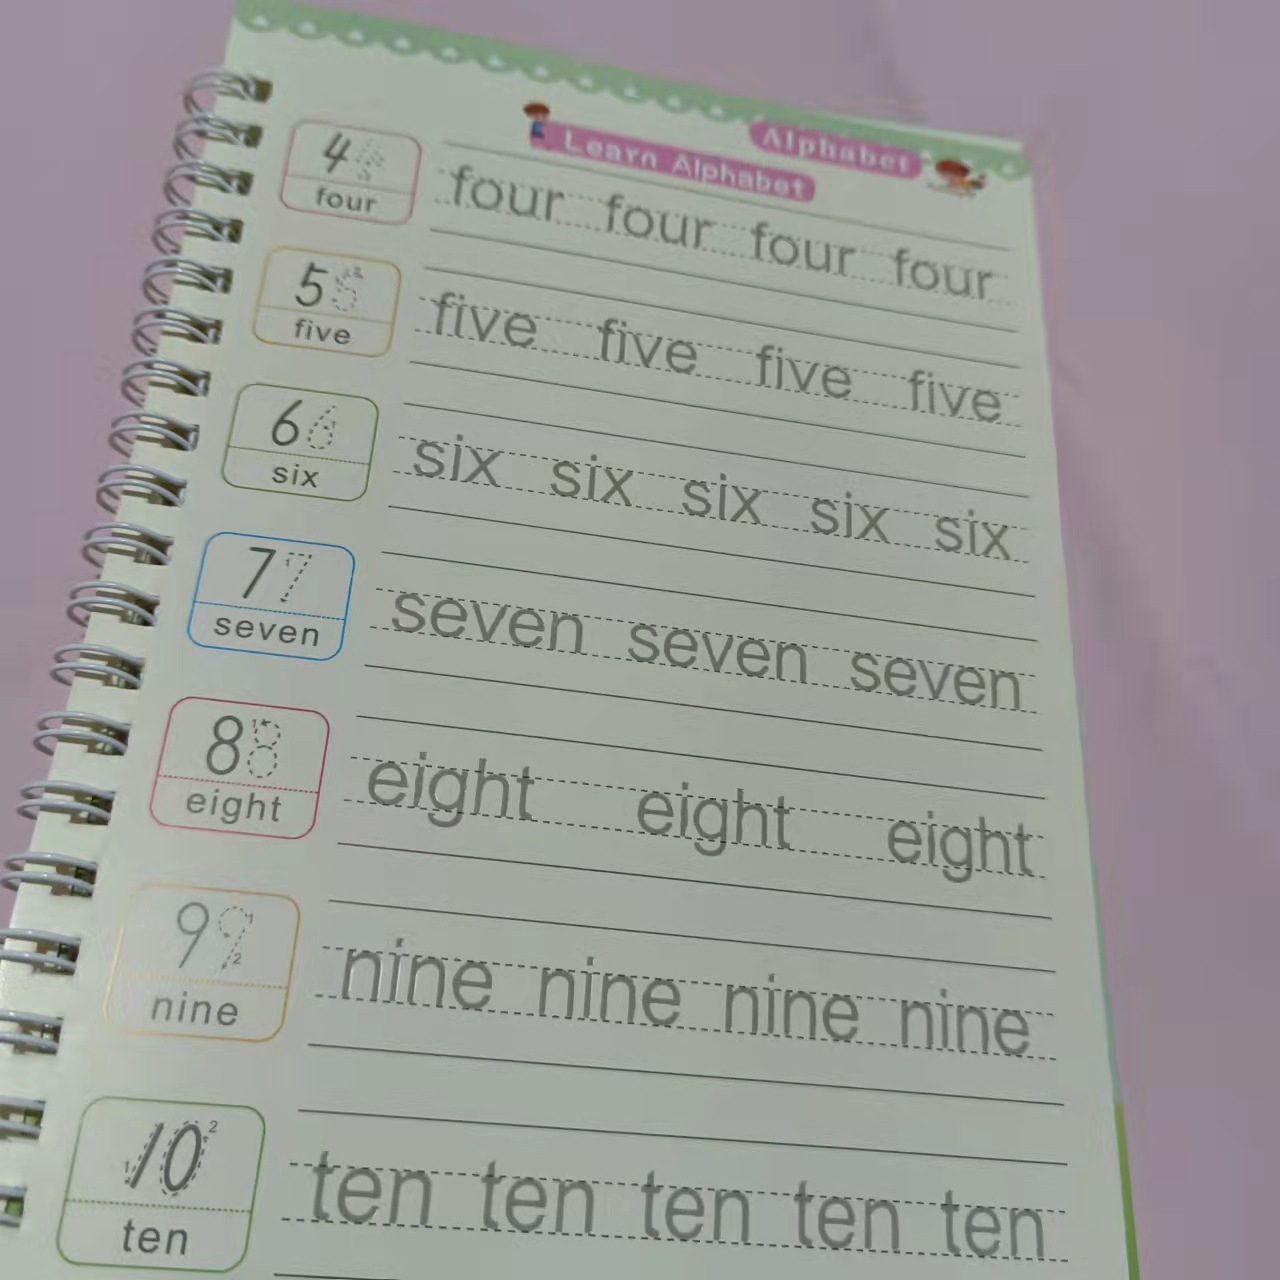 Alphabet
Learn Alphabet
4 4
four
four four four four
5 5
five
five five five five
6 6
six
six six six six six
7 7
seven
seven seven seven
8 8
eight
eight eight eight
9 9
nine
nine nine nine nine
10
ten
ten ten ten ten ten